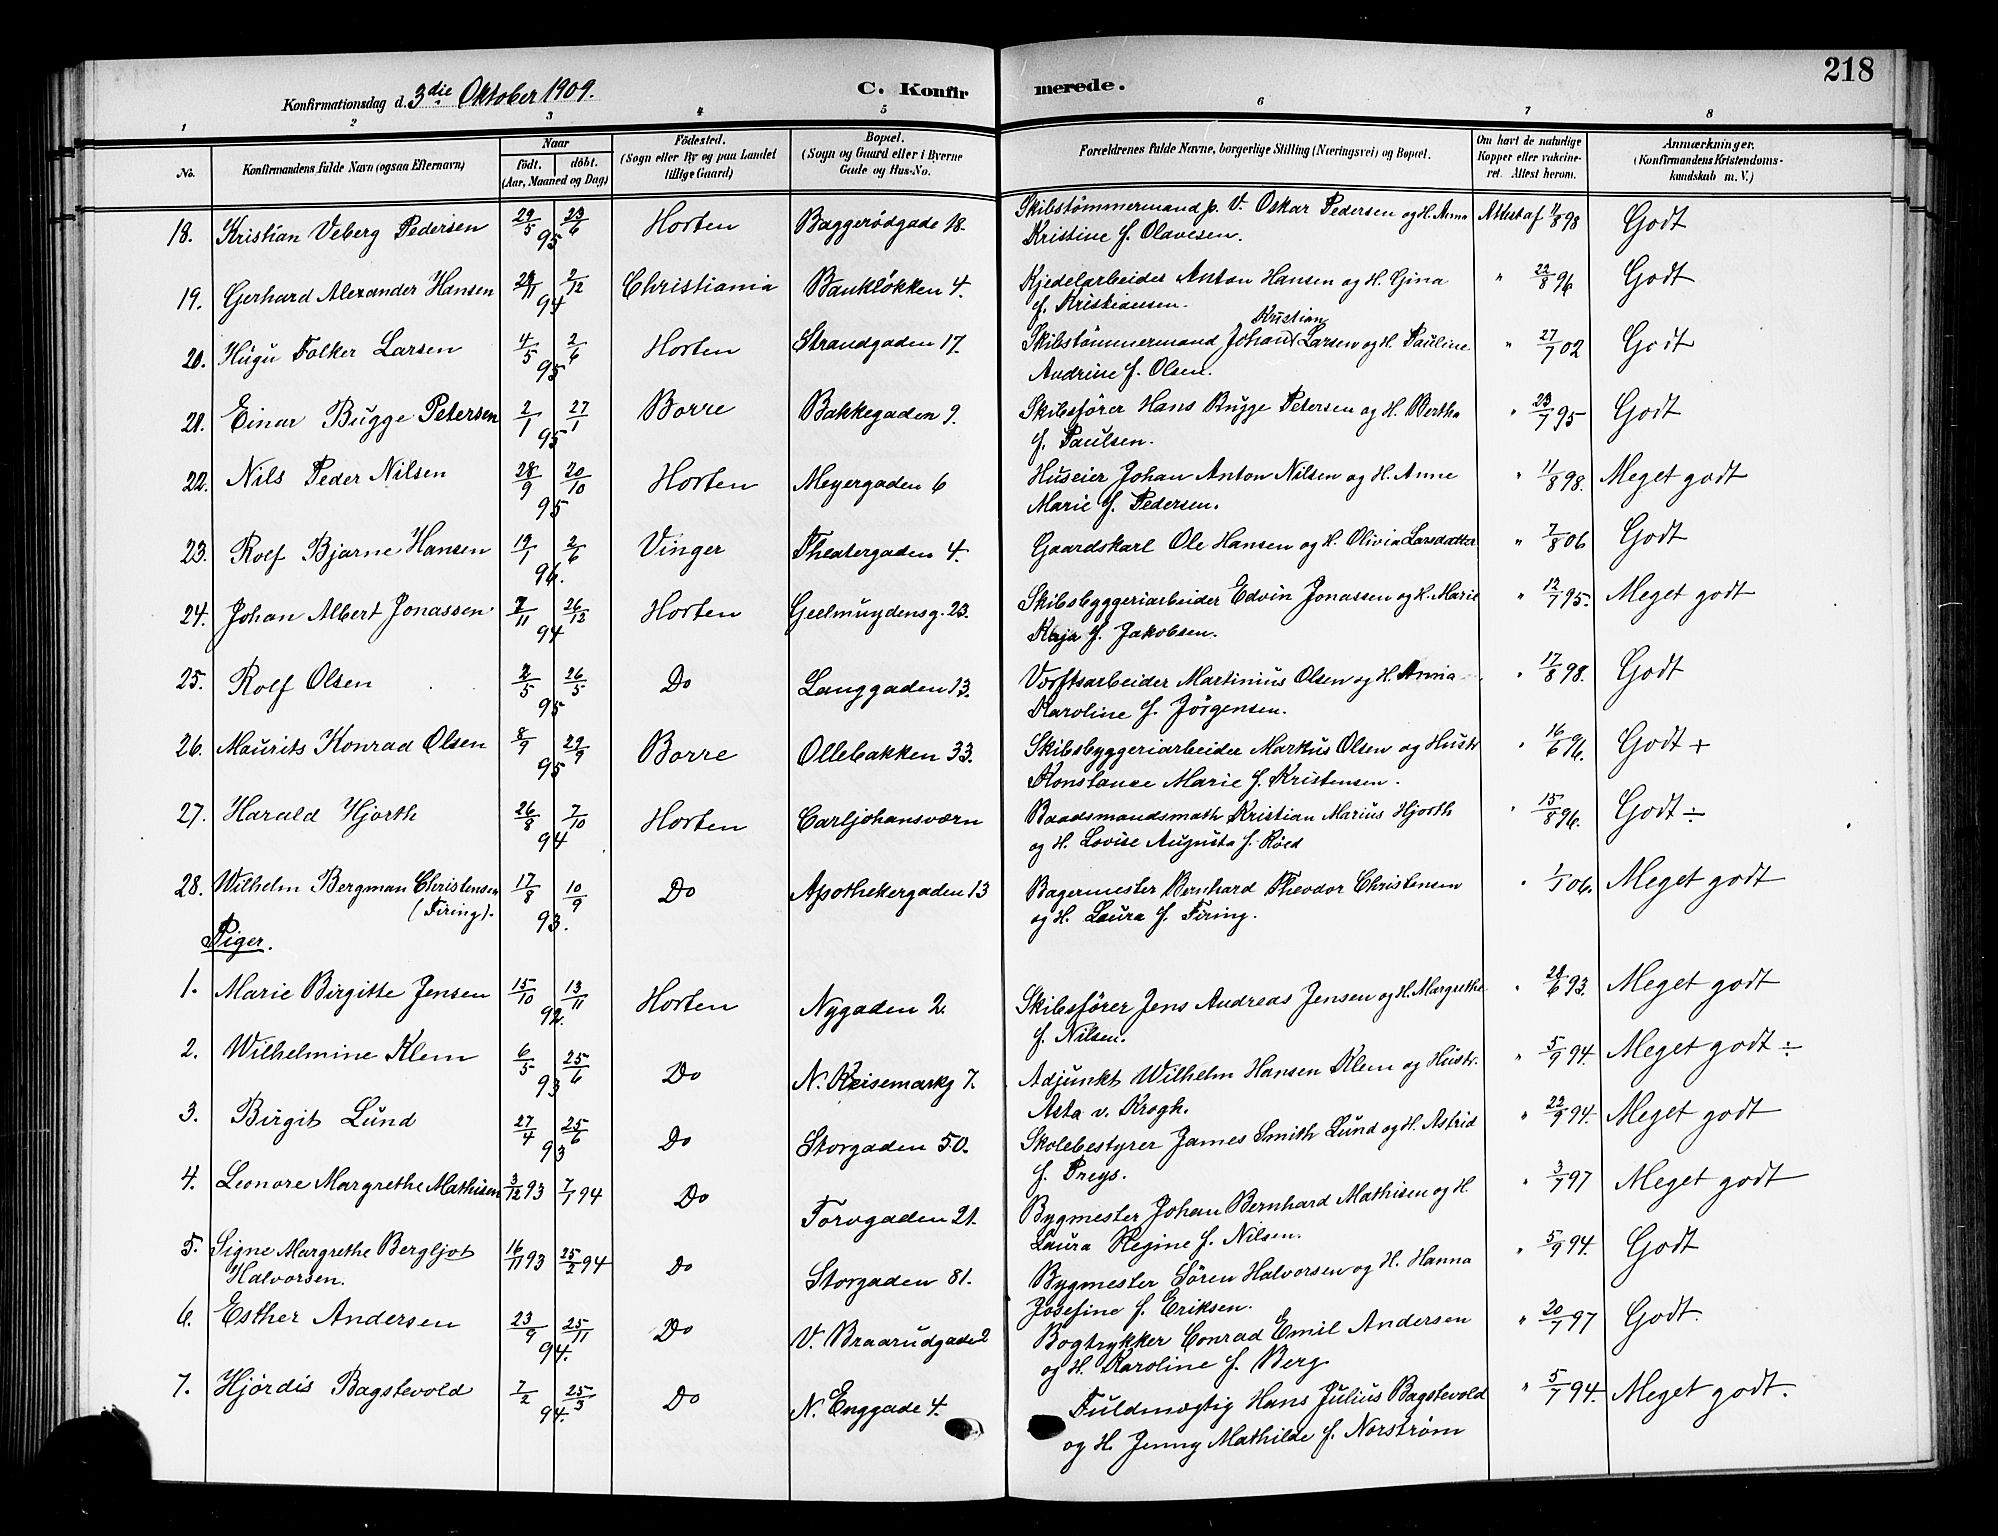 218
Konfirmationsdag d. 3die Oktober 1909.
C. Konfirmerede.
1 2 3 4 5 6 7 8
No. Konfirmandens fulde Navn (ogsaa Efternavn) Naar født. døbt. (Aar, Maaned og Dag) Fødested. (Sogn eller By og paa Landet tillige Gaard) Bopæl. (Sogn og Gaard eller i Byerne Gade og Hus-No. Forældrenes fulde Navne, borgerlige Stilling (Næringsvei) og Bopæl. Om havt de naturlige Kopper eller vakcineret. Attest herom. Anmærkninger. (Konfirmandens Kristendomskundskab m. V.)
18. Kristian Veberg Pedersen 29/5 95 23/6 Horten Baggerødgade 18. Skibstømmermand p. V. Oskar Pedersen og H. Anna Attest af 11/8 98 Godt
Kristine f. Olavesen.
19. Gerhard Alexander Hansen 29/11 94 2/12 Christiania Bankløkken 4. Kjedelarbeider Anton Hansen og H. Gina " 22/8 96 Godt
f. Kristiansen.
20. Hugu Folker Larsen 4/5 95 2/6 Horten Strandgaden 17. Skibstømmermand Johan Kristian Larsen og H. Pauline " 27/7 02 Godt
Andrine f. Olsen.
21. Einar Bugge Petersen 2/1 95 27/1 Borre Bakkegaden 9. Skibsfører Hans Bugge Petersen og H. Bertha " 23/7 95 Godt
f. Paulsen.
22. Nils Peder Nilsen 28/9 95 20/10 Horten Meyergaden 6 Huseier Johan Anton Nilsen og H. Anne " 11/8 98. Meget godt
Marie f. Pedersen.
23. Rolf Bjarne Hansen 19/1 96. 2/6 Vinger Theatergaden 4. Gaardskarl Ole Hansen og H. Olivia Larsdatter " 7/8 06 Godt
24. Johan Albert Jonassen 7/11 94 26/12 Horten Geelmuydensg. 23. Skibsbyggeriarbeider Edvin Jonassen og H. Marie " 12/7 95. Meget godt
Kaja f. Jakobsen.
25. Rolf Olsen 2/5 95 26/5 Do Langgaden 13. Værftsarbeider Martinius Olsen og H. Anna " 17/8 98. Godt
Karoline f. Jørgensen.
26. Maurits Konrad Olsen 8/9 95 29/9 Borre Ollebakken 33. Skibsbyggeriarbeider Markus Olsen og Hustr " 16/6 96. Godt +
Konstance Marie f. Kristensen.
27. Harald Hjorth 26/8 94 7/10 Horten Carljohansværn Baadsmandsmath Kristian Marius Hjorth " 15/8 96. Godt ÷
og H. Lovise Augusta f. Røed
28. Wilhelm Bergman Christensen 17/8 93. 10/9 Do Apothekergaden 13 Bagermester Bernhard Theodor Christensen " 1/1 06. Meget godt
(Firing). og H. Laura f. Firing.
Piger.
1. Marie Birgitte Jensen 15/10 92. 13/11 Horten Nygaden 2. Skibsfører Jens Andreas Jensen og H. Margrethe " 28/6 93. Meget godt
f. Nilsen.
2. Wilhelmine Klem 6/5 93 25/6 Do N. Keisemarkg 7. Adjunkt Wilhelm Hansen Klem og Hustr. " 5/9 94. Meget godt ÷
Asta v. Krogh.
3. Birgit Lund 27/4 93 25/6 Do Storgaden 50. Skolebestyrer James Smith Lund og H. Astrid " 22/9 94. Meget godt
f. Preys.
4. Leonore Margrethe Mathisen 3/12 93 7/1 94 Do Torvgaden 21. Bygmester Johan Bernhard Mathisen og H. " 3/7 97 Meget godt
Laura Regine f. Nilsen.
5. Signe Margrethe Bergljot 16/11 93 25/2 94 Do Storgaden 81. Bygmester Søren Halvorsen og H. Hanna " 5/9 94. Godt
Halvorsen. Josefine f. Eriksen.
6. Esther Andersen 23/9 94. 25/11 Do V. Braarudgade 2 Bogtrykker Conrad Emil Andersen " 20/7 97 Godt.
og H. Karoline f. Berg
7. Hjørdis Bagstevold 7/2 94. 25/3 Do N. Enggade 4. Fuldmægtig Hans Julius Bagstevold " 5/7 94. Meget godt.
og H Jenny Mathilde f. Norstrøm